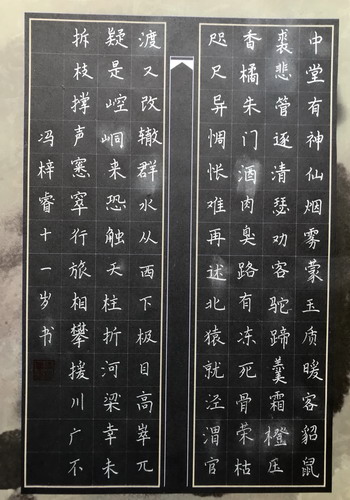 中堂有神仙烟雾蒙玉质暖客貂鼠
裘悲管逐清瑟劝客驼蹄羹霜橙压
香橘朱门酒肉臭路有冻死骨荣枯
咫尺异惆怅难再述北猿就泾渭官
渡又改辙群水从西下极目高崒兀
疑是崆峒来恐触天柱折河梁幸未
拆枝撑声窸窣行旅相攀援川广不
冯梓睿十一岁书